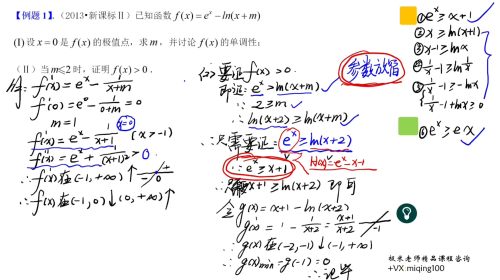 【例题 1】.（2013•新课标Ⅱ）已知函数 f(x)=eˣ−ln(x+m)
(Ⅰ) 设 x=0 是 f(x) 的极值点，求 m，并讨论 f(x) 的单调性；
(Ⅱ) 当 m≤2 时，证明 f(x)>0．
f'(x)=eˣ−1/(x+m)
f'(0)=e⁰−1/(0+m)=0
m=1 x=0
f'(x)=eˣ−1/(x+1) (x>-1)
f''(x)=eˣ+1/(x+1)²>0
∴f'(x)在(-1,+∞)↑
∴f(x)在(-1,0)↓(0,+∞)↑
要证f(x)>0
即证:eˣ>ln(x+m)
∵2≥m
∴ln(x+2)≥ln(x+m)
∴只需要证:eˣ≥ln(x+2)
∵eˣ≥x+1
h(x)=eˣ-x-1
x+1≥ln(x+2)即可
令g(x)=x+1-ln(x+2)
g'(x)=1-1/(x+2)=(x+1)/(x+2)
-1
g(x)在(-2,-1)↓(-1,+∞)
g(x)min=g(-1)=0
∴证毕
参数放缩
①eˣ≥x+1
②x≥ln(x+1)
③x-1≥lnx
④1/x-1≥ln1/x
⑤1/x-1≥-lnx
1/x-1+lnx≥0
⑥eˣ≥ex
极米老师精品课程咨询
+VX:miqing100